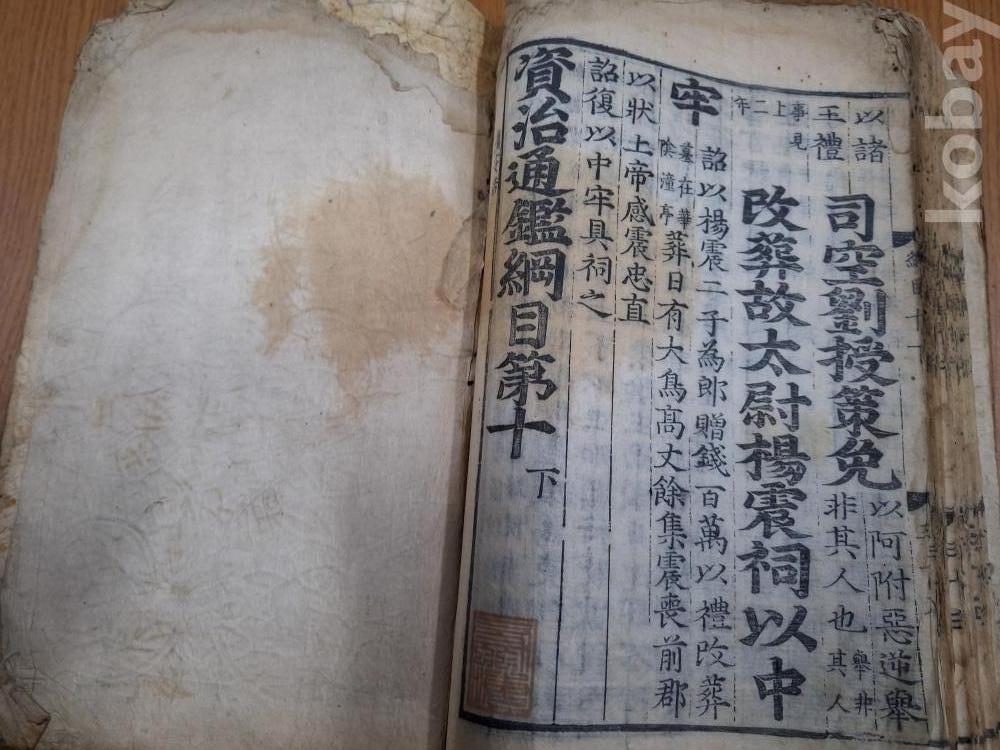 以諸
王禮
司空劉授策免
以阿附惡逆舉
非其人也
舉非
其人
事見
上
二
年
改葬故太尉楊震祠以中
牢
詔以楊震二子為郎贈錢百萬以禮改葬
墓在華
陰潼亭
葬日有大鳥高丈餘集震喪前郡
以狀上帝感震忠直
詔復以中牢具祠之
資治通鑑綱目第十
下
kobay